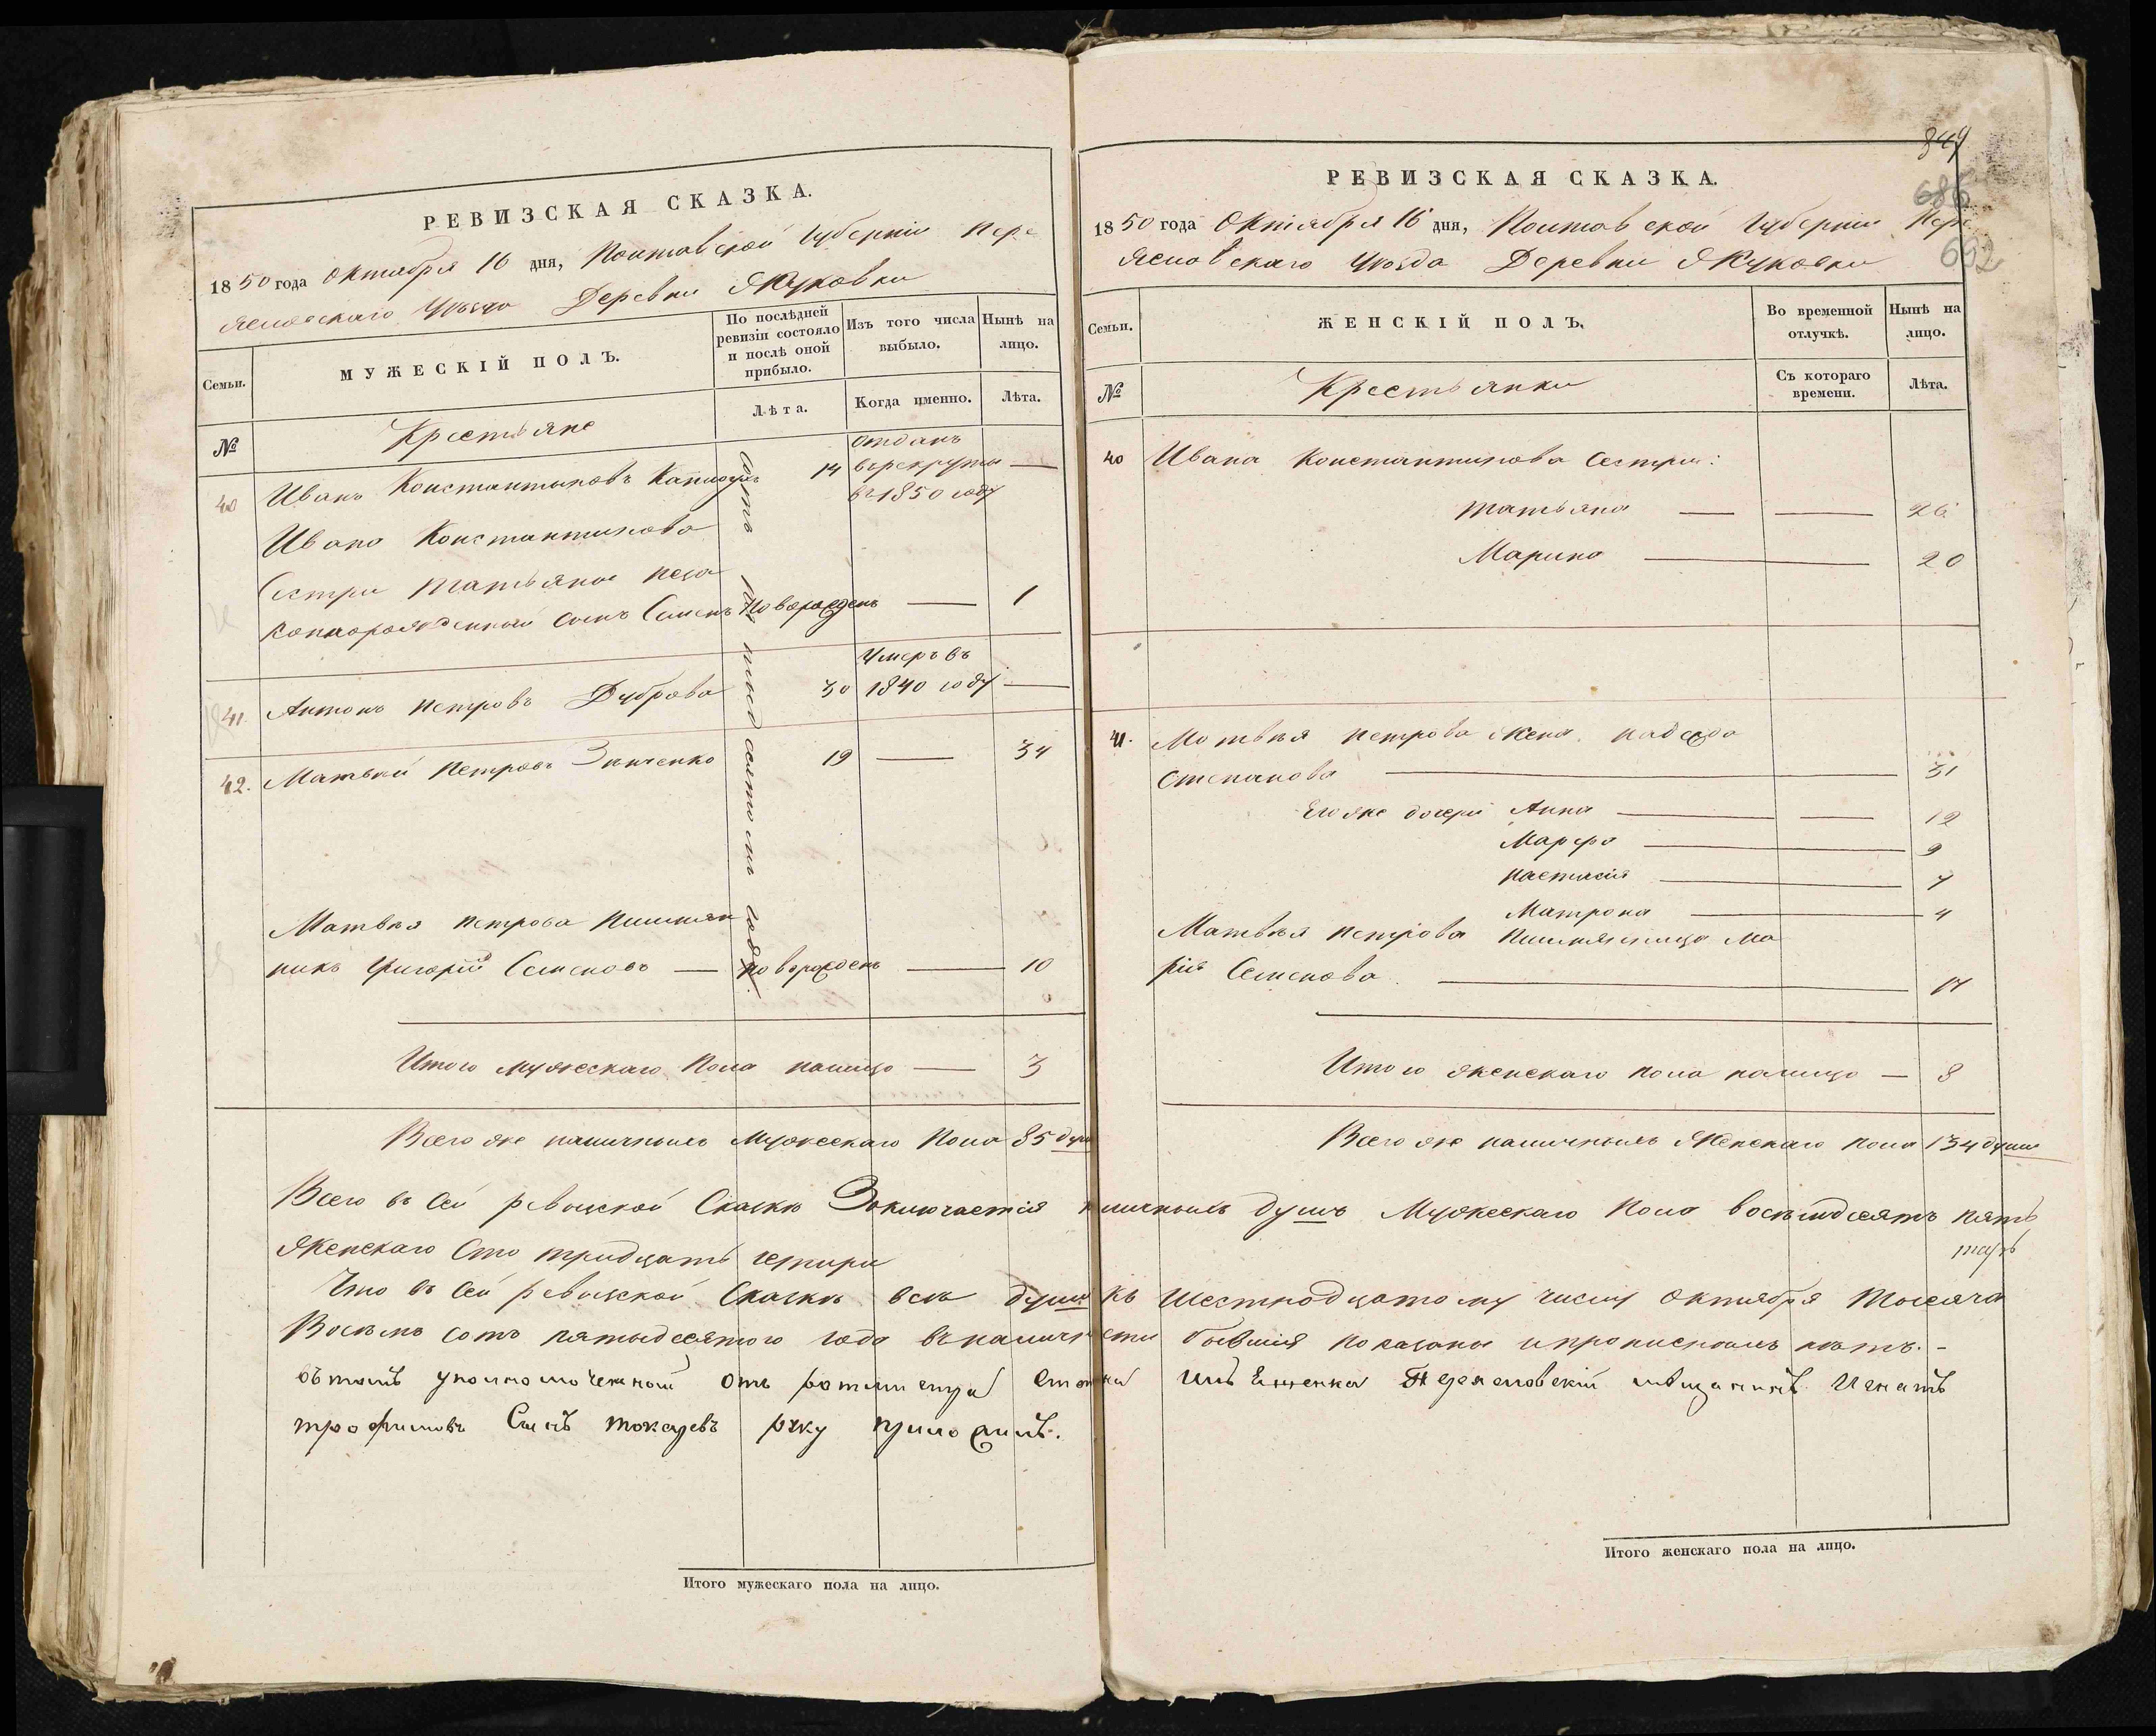 РЕВИЗСКАЯ СКАЗКА.
1850 года Октября 16 дня, Полтавской Губерніи Пере
яславскаго Уѣзда Деревни Жуковки
Семьи.
МУЖЕСКІЙ ПОЛЪ.
По послѣдней ревизіи состояло и послѣ оной прибыло.
Изъ того числа выбыло.
Нынѣ на лицо.
№
Крестьяне
Лѣта.
Когда именно.
Лѣта.
40 Иванъ Константиновъ 14 Отданъ
в рекруты —
въ 1850 году
Ивана Константинова
Сестры Татьяны неза
коннорожденный сынъ Семенъ новорожденъ — 1
41. Антонъ Петровъ Дуброва 30 Умеръ въ
1840 году —
42. Матвей Петровъ Зинченко 19 — 34
Матвѣя Петрова племян
никъ Григорій Семеновъ — новорожденъ — 10
сотъ пятьдесятомъ году.
Итого мужескаго пола налицо — 3
Всего же наличныхъ Мужескаго Пола 85 душъ
РЕВИЗСКАЯ СКАЗКА.
849
686
692
1850 года Октября 16 дня, Полтавской Губерніи Пере
яславскаго Уѣзда Деревни Жуковки
Семьи.
ЖЕНСКІЙ ПОЛЪ.
Во временной отлучкѣ.
Нынѣ на лицо.
№
Крестьянки
Съ котораго времени.
Лѣта.
40 Ивана Константинова Сестры:
Татьяна — — 26
Марина — 20
41. Матвѣя Петрова жена Надежда
Степанова — 31
Его же дочери Анна — — 12
Марфа — 9
Настасія — 7
Матрона — 4
Матвѣя Петрова племянница Ма
рія Семенова — 17
Итого женскаго пола налицо — 8
Всего же наличныхъ Женскаго пола 134 души
Всего въ сей ревизской Сказкѣ Заключается наличныхъ душъ Мужескаго Пола восемдесятъ пять
Женскаго Сто тридцать четыри
Что въ сей ревизской Сказкѣ всѣ души къ Шестнадцатому числу Октября Тысяча
Восемь сотъ пятьдесятого года въ наличности бывшія показаны и прописныхъ нѣтъ.-
въ томъ уполномоченной отъ Переяловскій мещанинъ Игнатъ
трофимовъ Сынъ токаревъ руку приложилъ.
Итого мужескаго пола на лицо.
Итого женскаго пола на лицо.